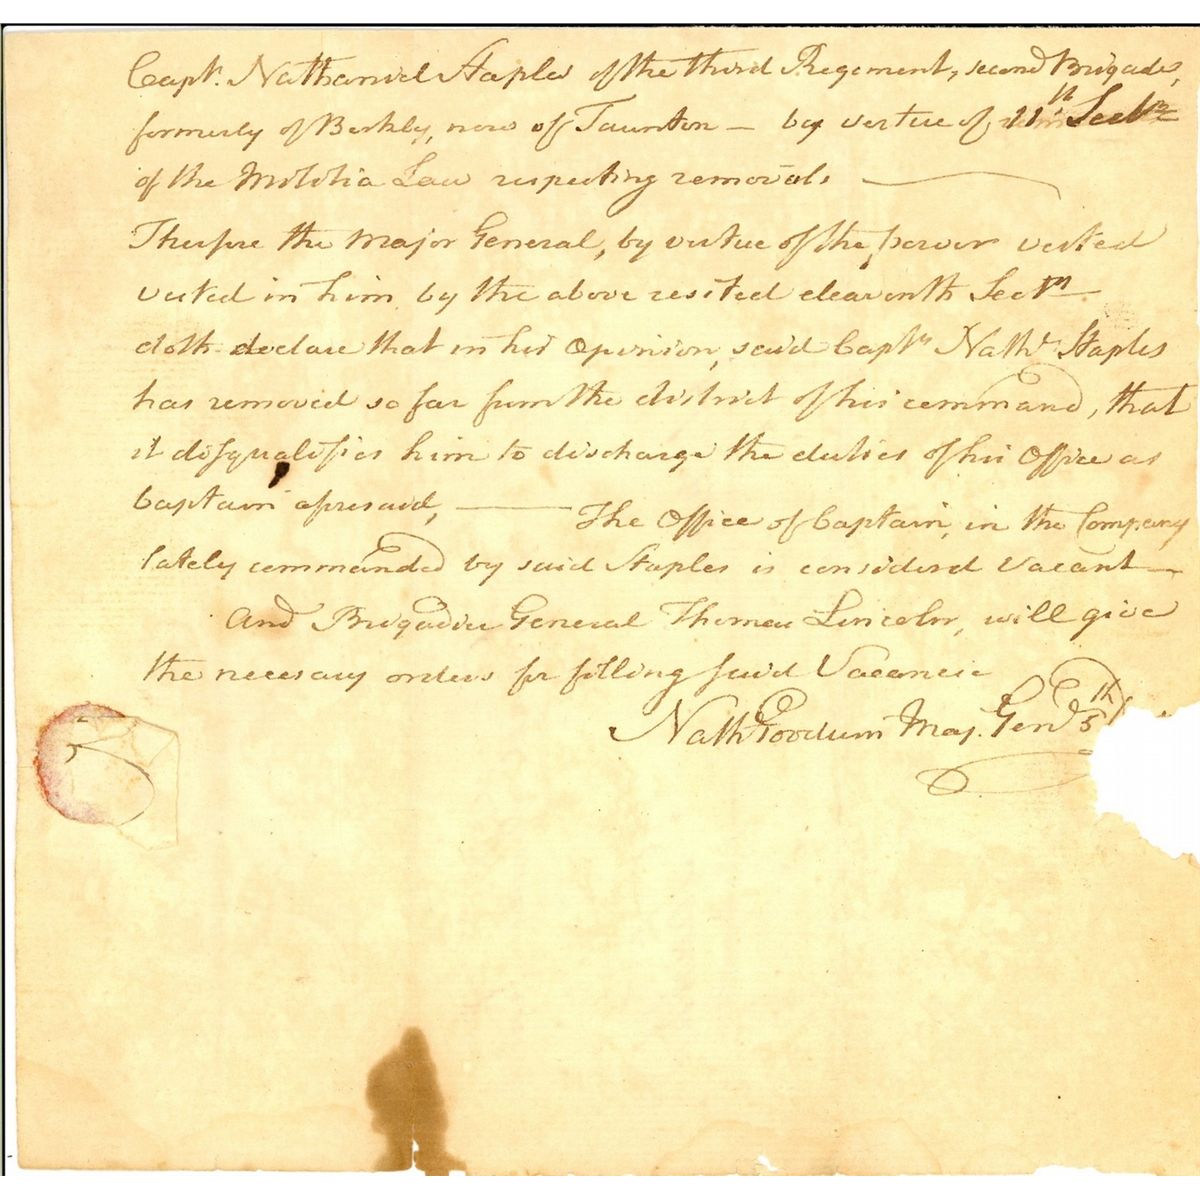 Capt. Nathaniel Staples of the third Regement, second Brigade,
formerly of Berkly, now of Taunton — by vertue of 11th Sectn
of the Militia Law respecting removals —
Therefore the Major General, by vertue of the power vested
vested in him by the above resited eleaventh Sectn
doth declare that in his Opinion, said Captn Nathl Staples
has removed so far from the district of his command, that
it disqualifies him to discharge the duties of his Office as
Captain aforesaid, — The Office of Captain, in the Company
lately commanded by said Staples is considerd Vacant —
And Brigadier General Thomas Lincoln, will give
the necesary orders for filling said Vacancie
Nath Goodwin Maj. Genl 5th